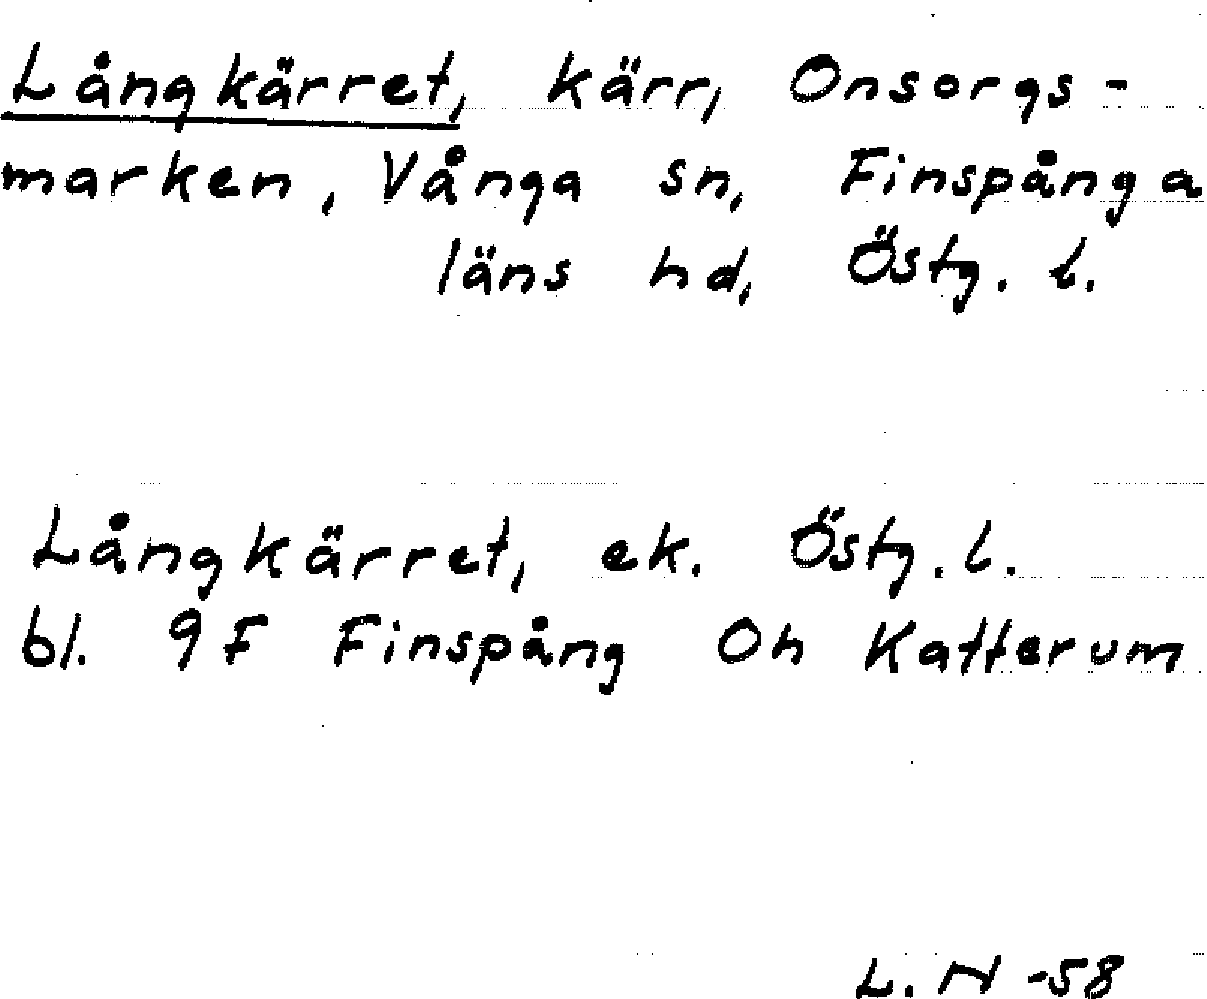 Långkärret, kärr, Onsorgs-
marken, Vånga sn, Finspånga
läns hd, Östg. l.
Långkärret, ek. Östg. l.
bl. 9F Finspång Oh Katterum
L. N -58